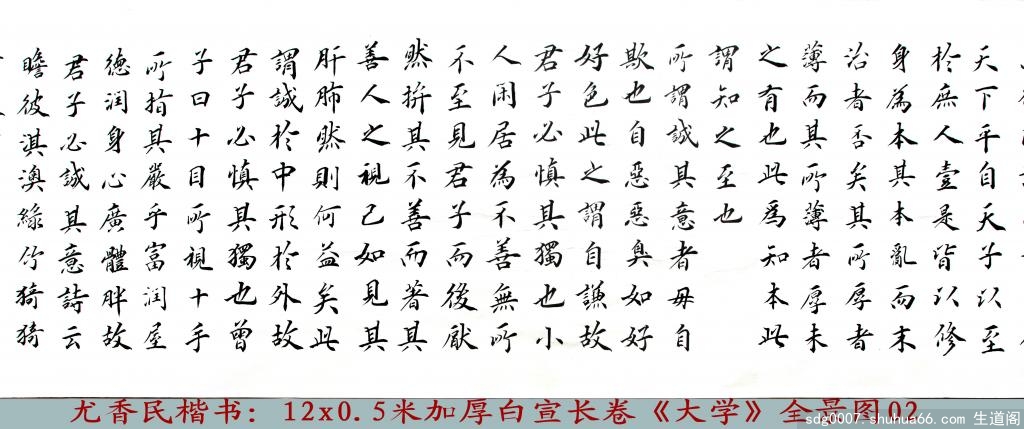 天下平自天子以至
於庶人壹是皆以修
身為本其本亂而末
治者否矣其所厚者
薄而其所薄者厚未
之有也此為知本此
謂知之至也
所謂誠其意者毋自
欺也自惡惡臭如好
好色此之謂自謙故
君子必慎其獨也小
人閑居為不善無所
不至見君子而後厭
然拚其不善而著其
善人之視己如見其
肝肺然則何益矣此
謂誠於中形於外故
君子必慎其獨也曾
子曰十目所視十手
所指其嚴乎富潤屋
德潤身心廣體胖故
君子必誠其意詩云
瞻彼淇澳綠竹猗猗
尤香民楷书：12x0.5米加厚白宣长卷《大学》全景图02
sdg0007.shuhua66.com 生道阁